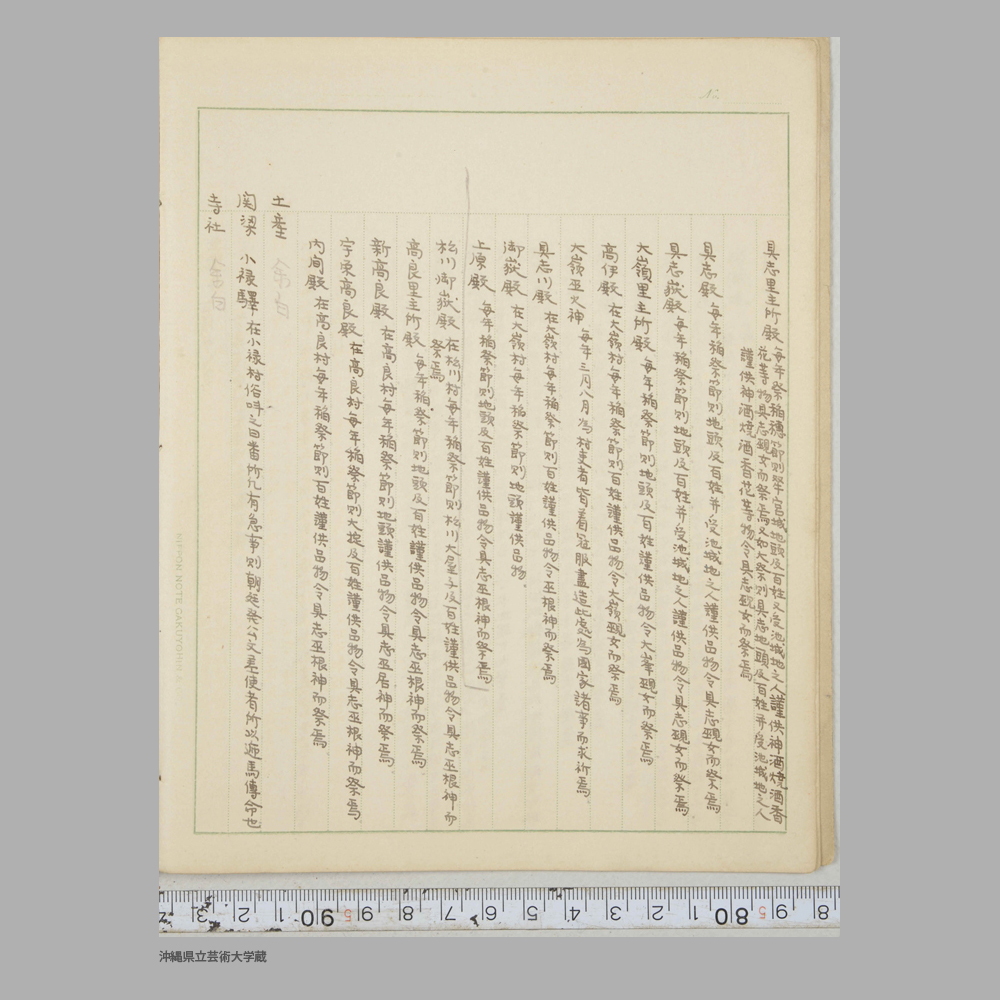 具志里主所殿 毎年祭稲穂節則挙宮城地頭及百姓又受池城地之人謹供神酒焼酒香
花等物具志覡女而祭焉又如大祭則具志地頭及百姓并受池城地之人
謹供神酒焼酒香花等物令具志覡女而祭焉
具志殿 毎年稲祭節則地頭及百姓并受池城地之人謹供品物令具志覡女而祭焉
具志嶽殿 毎年稲祭節則地頭及百姓并受池城地之人謹供品物令具志覡女而祭焉
大嶺里主所殿 毎年稲祭節則地頭及百姓謹供品物令大峯覡女而祭焉
高伊殿 在大嶺村毎年稲祭節則百姓謹供品物令大嶺覡女而祭焉
大嶺巫火神 毎年三月八月為村吏者皆着冠服盡造此處為國家諸事而求祈焉
具志川殿 在大嶺村毎年稲祭節則百姓謹供品物令巫根神而祭焉
御嶽殿 在大嶺村毎年稲祭節則地頭謹供品物
上原殿 毎年稲祭節則地頭及百姓謹供品物令具志巫根神而祭焉
松川御嶽殿 在松川村毎年稲祭節則松川大屋子及百姓謹供品物令具志巫根神而
祭焉
高良里主所殿 毎年稲祭節則地頭及百姓謹供品物令具志巫根神而祭焉
新高良殿 在高良村毎年稲祭節則地頭謹供品物令具志巫居神而祭焉
宇栄高良殿 在高良村毎年稲祭節則大掟及百姓謹供品物令具志巫根神而祭焉
内間殿 在高良村毎年稲祭節則百姓謹供品物令具志巫根神而祭焉
土産 余白
関梁 小禄驛 在小禄村俗叫之曰番所凡有急事則朝廷発公文差使者所以遞馬傳命也
寺社 余白
NIPPON NOTE GAKUYOHIN
12
沖縄県立芸術大学蔵